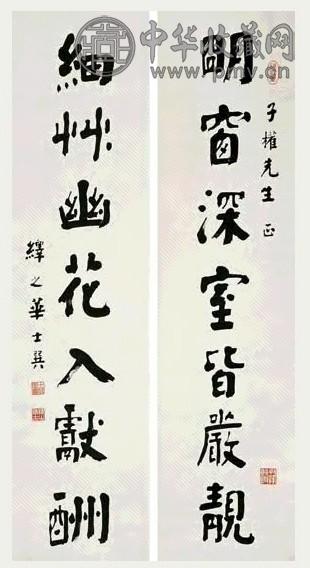 明窗深室皆嚴靚
子權先生 正
細艸幽花入獻酬
繹之華士巽
中华收藏网
www.pmy.cn